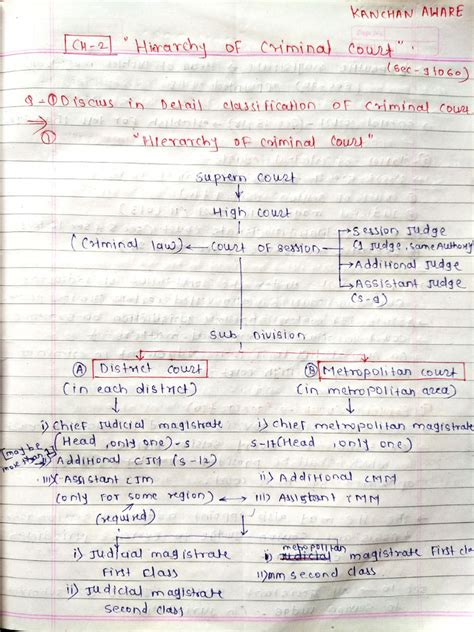 KANCHAN AWARE
CH-2 "Hirarchy of Criminal Court".
(Sec-9 to 60)
Q-① Discuss in Detail classification of criminal Cour
① "Hierarchy of criminal Court"
Suprem Court
High Court
(Criminal law) ← Court of session → Session Judge
(1 Judge, same Authority
→ Additional Judge
→ Assistant Judge
(S-9)
Sub Division
Ⓐ District Court Ⓑ Metropolitan court
(in each district) (in metropolitan area)
i) Chief Judicial magistrate i) Chief metropolitan magistrate
(Head, only one)-s S-17(Head, only one)
[may be more than 1] ii) Additional CJM (S-12) ii) Additional CMM
iii) Assistant CJM
(only for some region) ↔ iii) Assistant CMM
(required)
i) Judicial magistrate i) metropolitan magistrate First cla
First Class ii) mm second class
ii) Judicial magistrate
Second class